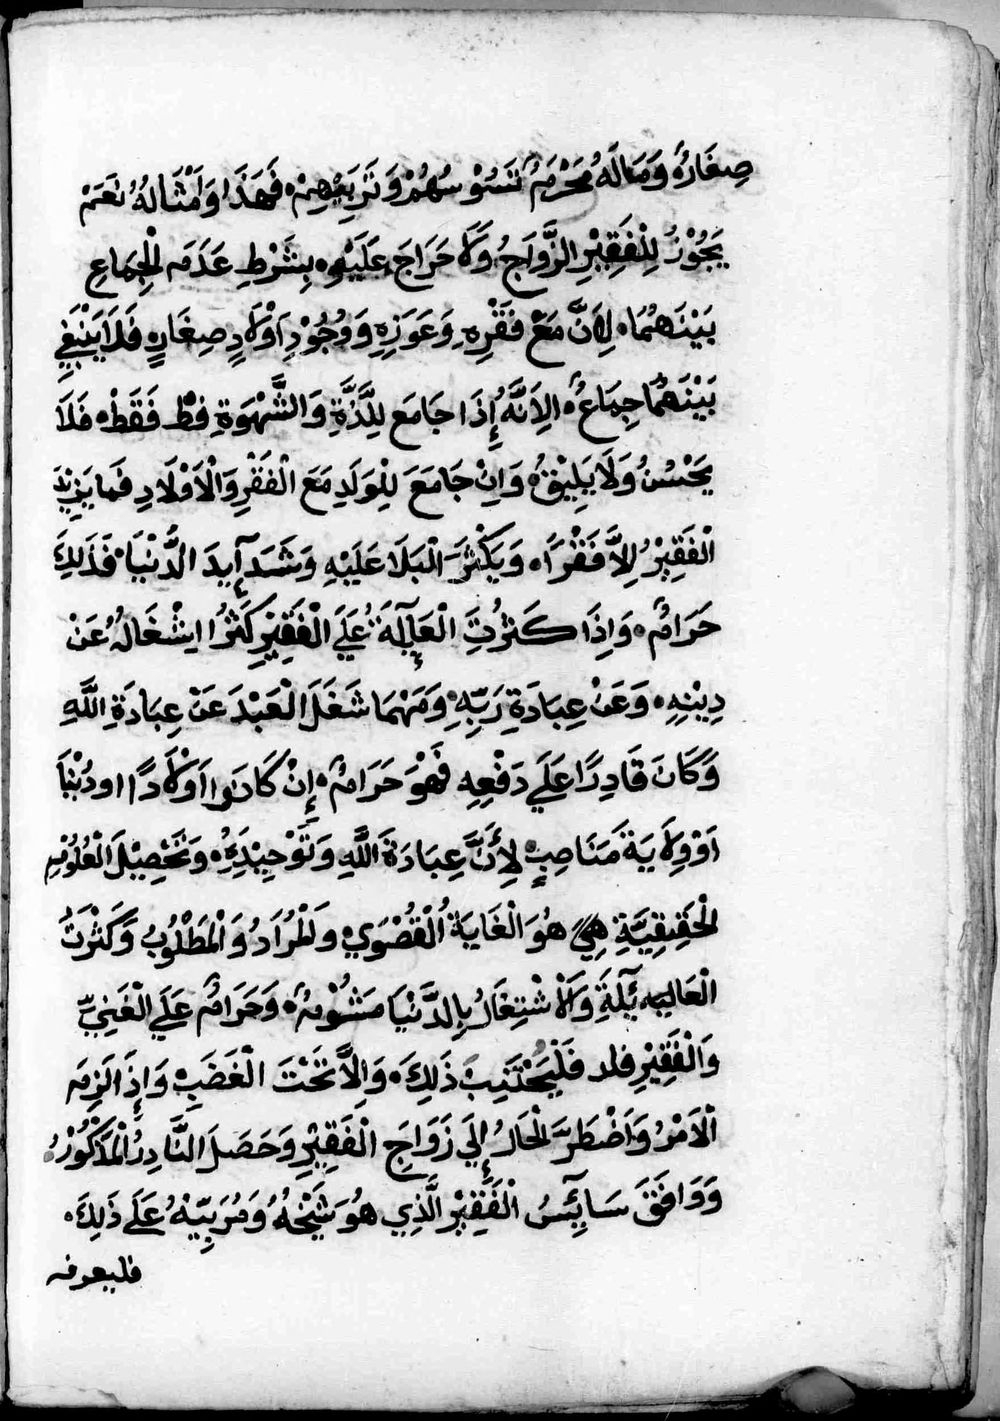 صِغَارُهُ وَمَالَهُ مَحْرَمٌ تَسُوْسُهُمْ وَتَرَبِّيْهِمْ، فَهَذَا وَأَمْثَالُهُ نَعَمْ
يَجُوْزُ لِلْفَقِيْرِ الزَّوَاجُ، وَلَا حَرَاجَ عَلَيْهِ، بِشَرْطِ عَدَمِ الْجِمَاعِ
بَيْنَهُمَا، لِأَنَّ مَعْ فَقْرِهِ وَعَوَزِهِ وَوُجُوْدِ اَوْلَادٍ صِغَارٍ فَلَا يَنْبَغِي
بَيْنَهُمَا جِمَاعٌ، لِأَنَّهُ إِذَا جَامَع لِلَّذَّةِ وَالشَّهْوَةِ فَقَطْ، فَلَا
يَحْسُنُ وَلَا يَلِيْقُ، وَاِنْ جَامَعَ لِلْوَلَدِ مَعَ الْفَقْرِ وَالْاَوْلَادِ فَمَا يَزِيْدُ
الْفَقِيْرُ اِلاَّ فَقْرًا، وَيَكْثَرَ الْبَلَا عَلَيْهِ وَشَدَآيِدَ الدُّنْيَا، فَذَلِكَ
حَرَامٌ، وَاِذَا كَثُرَتِ الْعَآيِلَةُ عَلَي الْفَقِيْرِ كَثُرَ اشْغَالُهُ عَنْ
دِيْنِهِ، وَعَنْ عِبَادَةِ رَبِّهِ، وَمَهْمَا شَغَلَ الْعَبْدَ عَنْ عِبَادَةِ اللَّهِ
وَكَانَ قَادِرًا عَلَي دَفْعِهِ فَهْوَ حَرَامٌ، إِنْ كَانَوا اَوْلَادًا او دُنْيَا
اَوْ وِلَايَةَ مَنَاصِبٍ، لِأَنَّ عِبَادَةَ اللَّهِ وَتَوْحِيْدِهُ، وَتَحْصِيْلَ الْعُلُوْمِ
الْحَقِيْقِيَّةِ هِيَ هُوَ الْغَايَةُ الْقُصْوَي، وَالْمُرَادُ وَالْمَطْلُوبُ وَكَثْرَتُ
الْعَالِيَه ئِلَةِ وَالْاشْتِغَالُ بِالدُّنْيَا مَشُوْمٌ، وَحَرَامٌ عَلَي الْغَنِيِّ
وَالْفَقِيْرِ فَلْيَجْتَنِبْ ذَلِكَ، وَاِلاَّ تَحْتَ الْغَضَبِ، وَإِذَا لَزِمَ
الْاَمْرُ وَاَضْطَرَّ الْحَالُ إِلَي زَوَاجِ الْفَقِيْرِ وَحَصَلَ النَّادِرُ الْمَذْكُوْرُ،
وَوَافَقَ سَآيِسُ الْفَقِيْرِ الَّذِي هُوَ شَيْخُهُ وَمُرَبِّيْهُ عَلَے ذَلِكَ،
فليعرفه